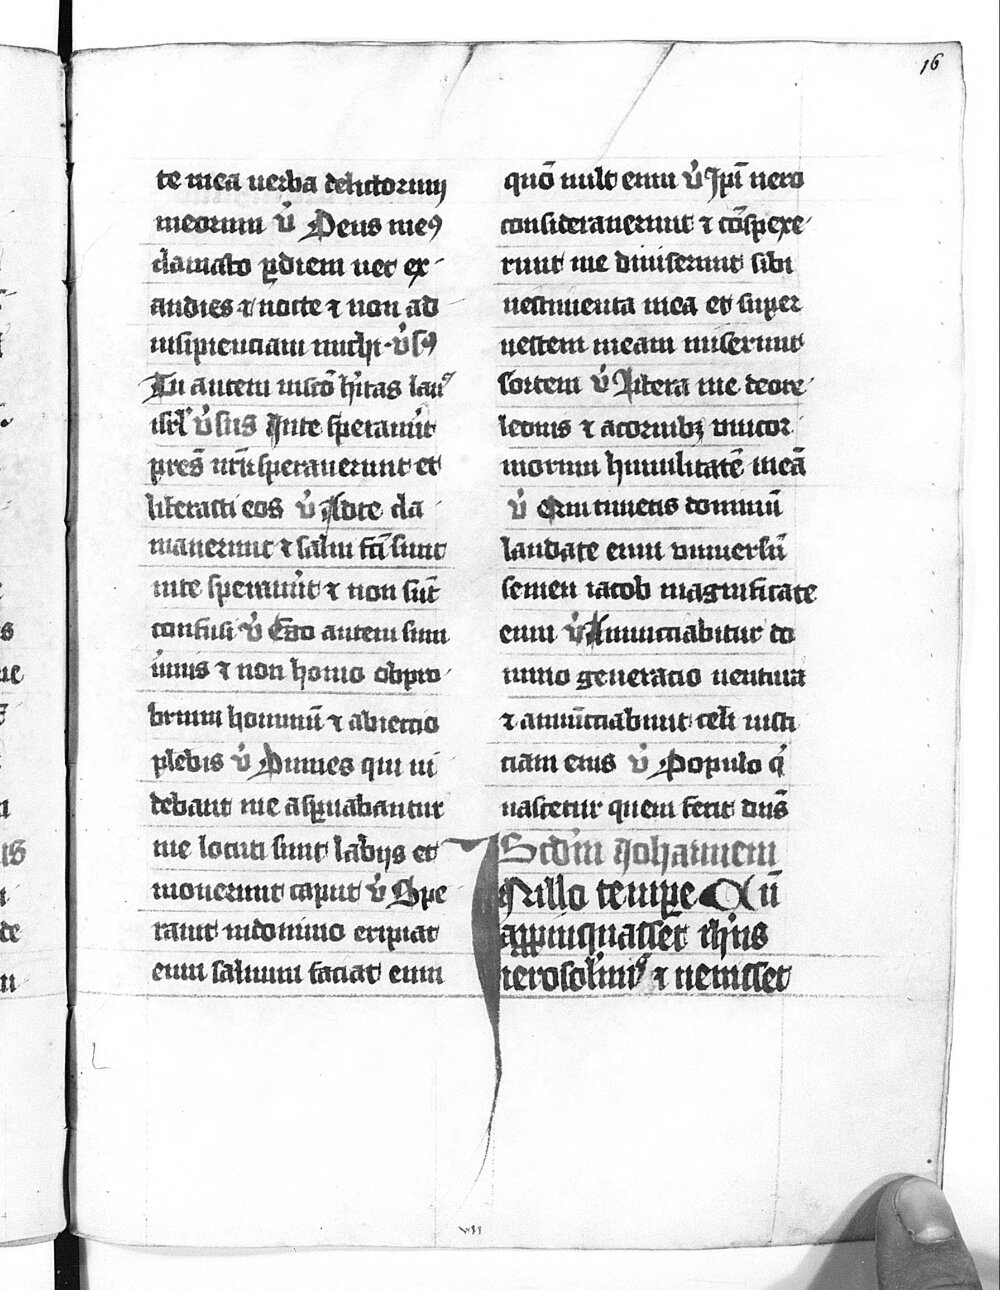 16
te mea uerba delictorum
meorum v̇ Deus me⁹
clamabo ꝑ diem nec ex-
audies ⁊ nocte ⁊ non ad
insipienciam michi · v̇ s⁹
Tu autem in sc̄o h̓itas laus
isrl̓ v̇sus In te sperauer̄t
pr̄es nr̄i sperauerunt et
liberasti eos v̇ Ad te cla
mauerunt ⁊ salui fc̄i sunt
in te sperauer̄t ⁊ non sūt
confusi v̇ Ego autem sum
u̓mis ⁊ non homo obpro-
brium hominū ⁊ abiectio
plebis v̇ Omnes qui ui
debant me aspnabantur
me locuti sunt labijs et
mouerunt caput v̇ Spe
rauit in domino eripiat
eum saluum faciat eum
quō uult eum v̇ Ipī uero
considerauerunt ⁊ cōspexe-
runt me diuiserunt sibi
uestimenta mea et super
uestem meam miserunt
sortem v̇ Libera me de ore-
leonis ⁊ a cornibꝫ unicor-
niorum humilitatē meā
v̇ Qui timetis dominū
laudate eum uniuersū
semen iacob magnificate
eum v̇ Annunciabitur do
mino generacio uentura
⁊ annūciabunt celi iusti
ciam eius v̇ Populo q̓
nascetur quem fecit dn̄s
Scdm̄ Johannem
In illo tempe Cū
appinquasset ih̓us
ierosolimis ⁊ uenisset